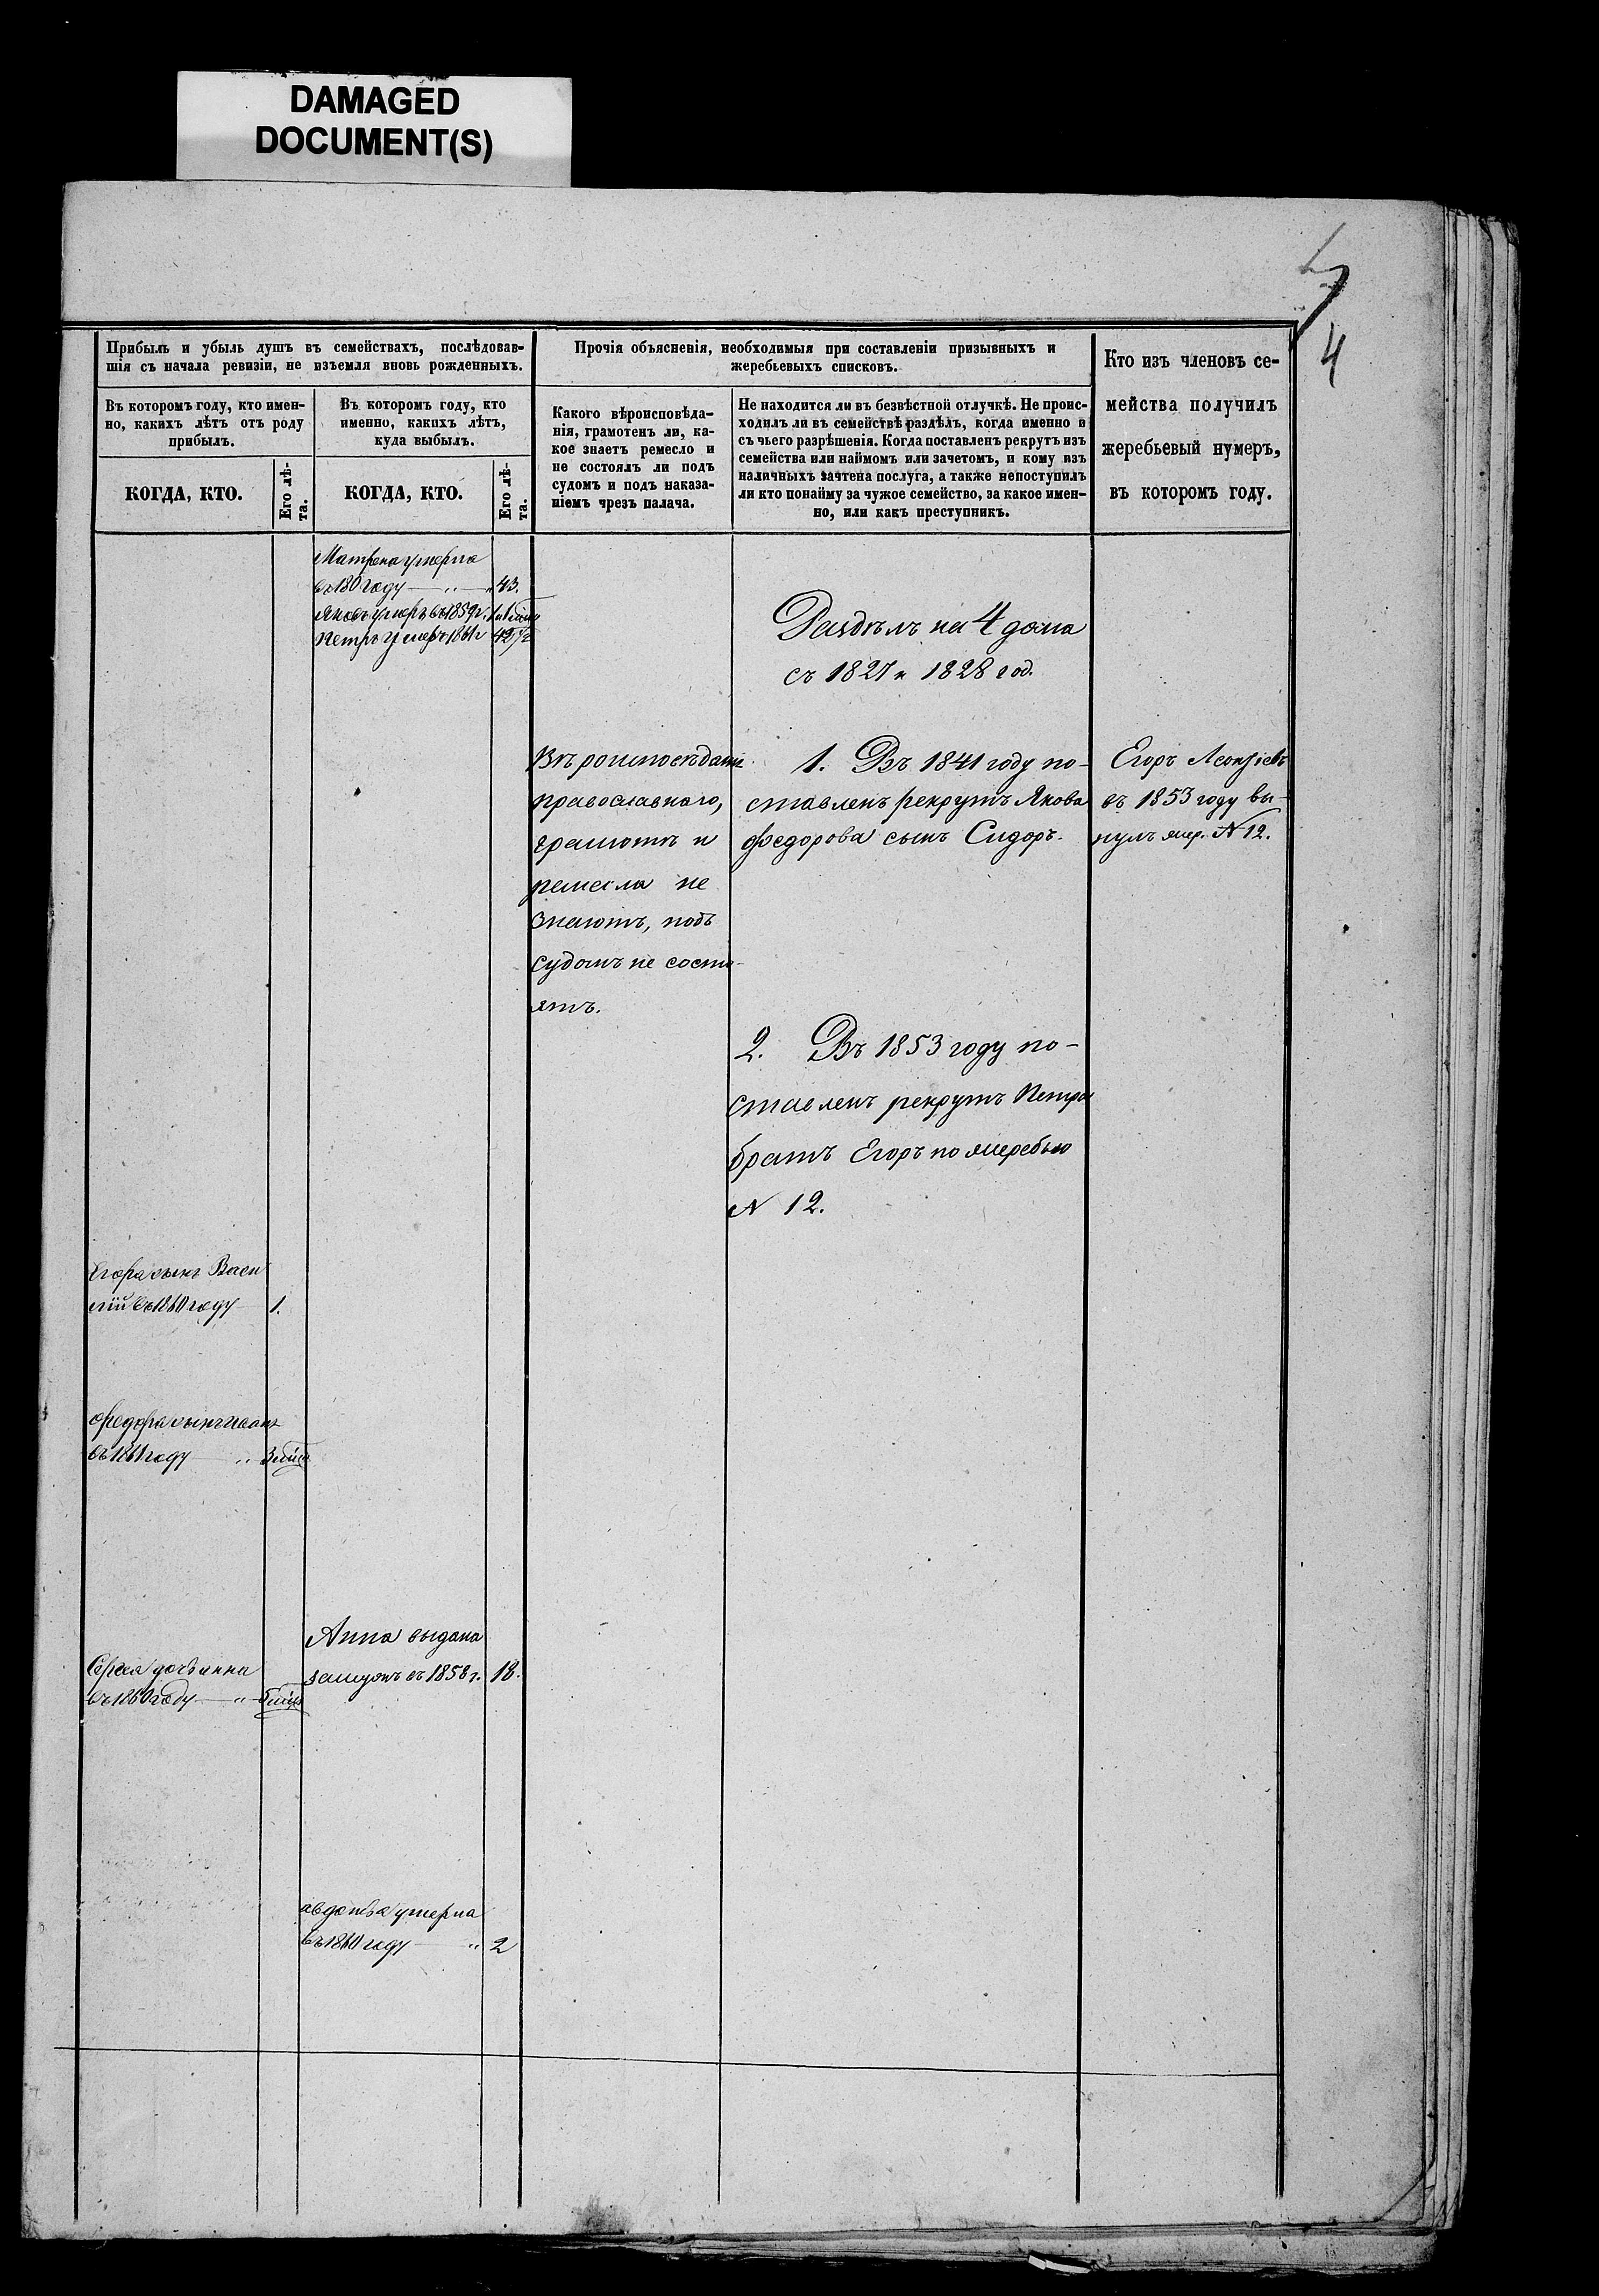 DAMAGED
DOCUMENT(S)
4
Прибыль и убыль душъ въ семействахъ, послѣдовав-
шія съ начала ревизіи, не изъемля вновь рожденныхъ.
Въ которомъ году, кто имен-
но, какихъ лѣтъ отъ роду
прибылъ.
КОГДА, КТО.
Его лѣ-
та.
Въ которомъ году, кто
именно, какихъ лѣтъ,
куда выбылъ.
КОГДА, КТО.
Его лѣ-
та.
Прочія объясненія, необходимыя при составленіи призывныхъ и
жеребьевыхъ списковъ.
Какого вѣроисповѣда-
нія, грамотенъ ли, ка-
кое знаетъ ремесло и
не состоялъ ли подъ
судомъ и подъ наказа-
ніемъ чрезъ палача.
Не находится ли въ безвѣстной отлучкѣ. Не проис-
ходилъ ли въ семействѣ раздѣлъ, когда именно и
съ чьего разрѣшенія. Когда поставленъ рекрутъ изъ
семейства или наймомъ или зачетомъ, и кому изъ
наличныхъ зачтена послуга, а также непоступилъ
ли кто понайму за чужое семейство, за какое имен-
но, или какъ преступникъ.
Кто изъ членовъ се-
мейства получилъ
жеребьевый нумеръ,
въ которомъ году.
Матрена умерла
въ 180 году — " — " 43.
Яковъ умеръ въ 1859 г.
Петръ умеръ 1861 г 42 1/2
Раздѣлъ на 4 дома
съ 1827 н 1828 год.
Вѣроисповѣданіе
православнаго,
грамотѣ и
ремесла не
знаютъ, подъ
судомъ не состо-
ятъ.
1. Въ 1841 году по-
ставленъ рекрутъ Якова
Федорова сынъ Сидоръ.
Егоръ Леонтіевъ
въ 1853 году вы-
нулъ жер. N 12.
2. Въ 1853 году по-
ставленъ рекрутъ Петра
братъ Егоръ по жеребью
N 12.
Егора сынъ Васи
лій въ 1860 году 1.
Федора сынъ Иванъ
въ 1861 году — "
Анна выдана
замужъ въ 1858 г. 18.
Сергея дочь Анна
въ 1860 году — "
Авдотья умерла
въ 1860 году — " 2